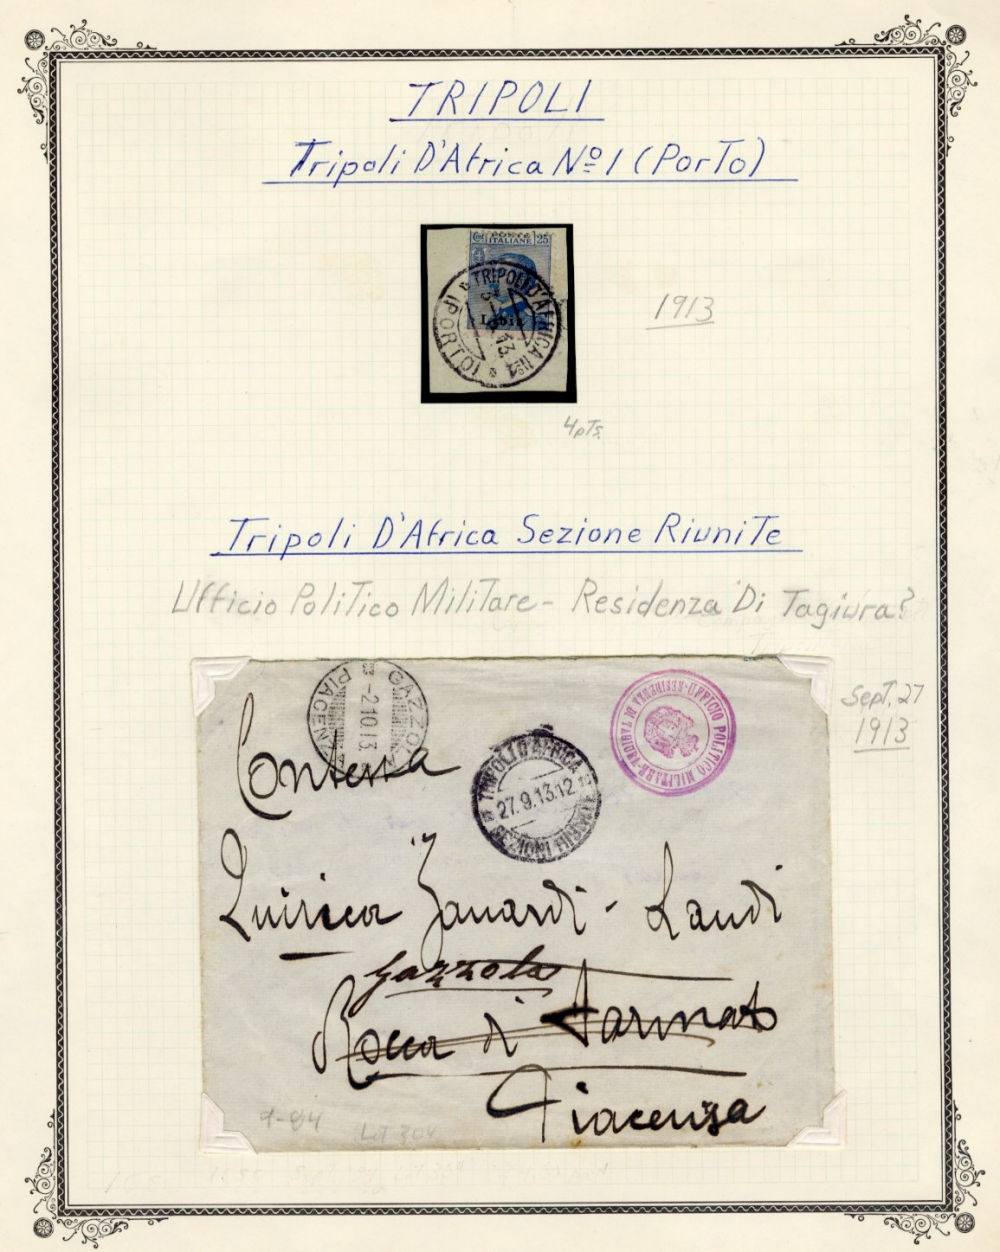 TRIPOLI
Tripoli D'Africa Nº 1 (PorTo)
Cent POSTE ITALIANE 25
Libia
TRIPOLI D'AFRICA Nº1 (PORTO)
13
1913
4pTs.
Tripoli D'Africa Sezione RiuniTe
Ufficio PoliTico MiliTare - Residenza Di Tagiura?
SepT. 27
1913
GAZZOLA
PIACENZA
-2.10.13
TRIPOLI D'AFRICA
27.9.13.12
SEZIONI RIUNITE
UFFICIO POLITICO MILITARE - RESIDENZA DI TAGIURA
Contessa
Quirica Zanardi - Landi
Gazzola
Rocca di
Piacenza
9-84
LoT 304